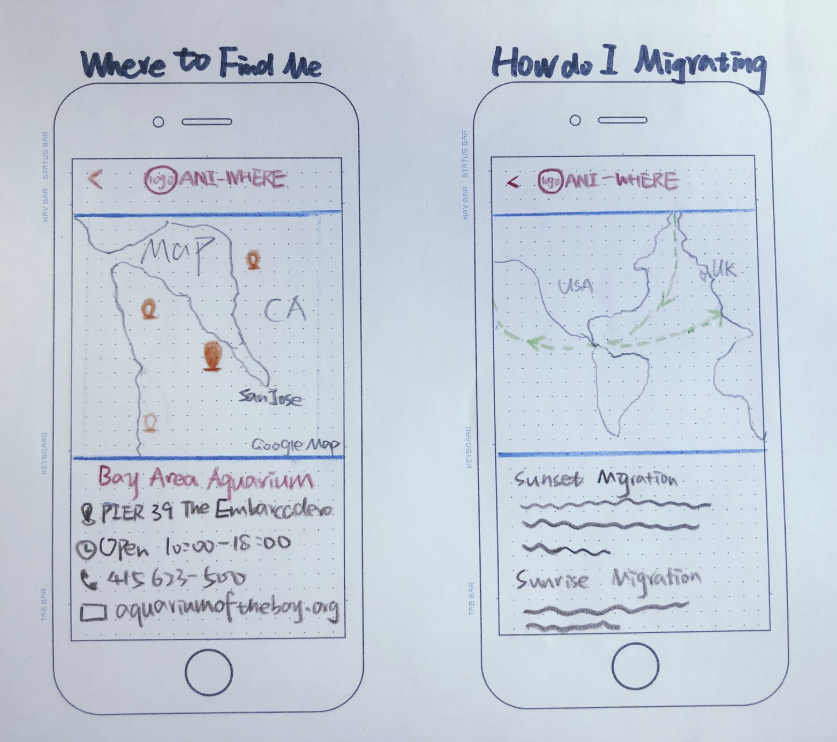 Where to Find Me
STATUS BAR
NAV BAR
KEYBOARD
TAB BAR
< logo ANI-WHERE
Map
CA
San Jose
Google Map
Bay Area Aquarium
PIER 39 The Embarccdero
Open 10:00-18:00
415 623-500
aquariumofthebay.org
How do I Migrating
STATUS BAR
NAV BAR
KEYBOARD
TAB BAR
< logo ANI-WHERE
USA
UK
Sunset Migration
Sunrise Migration